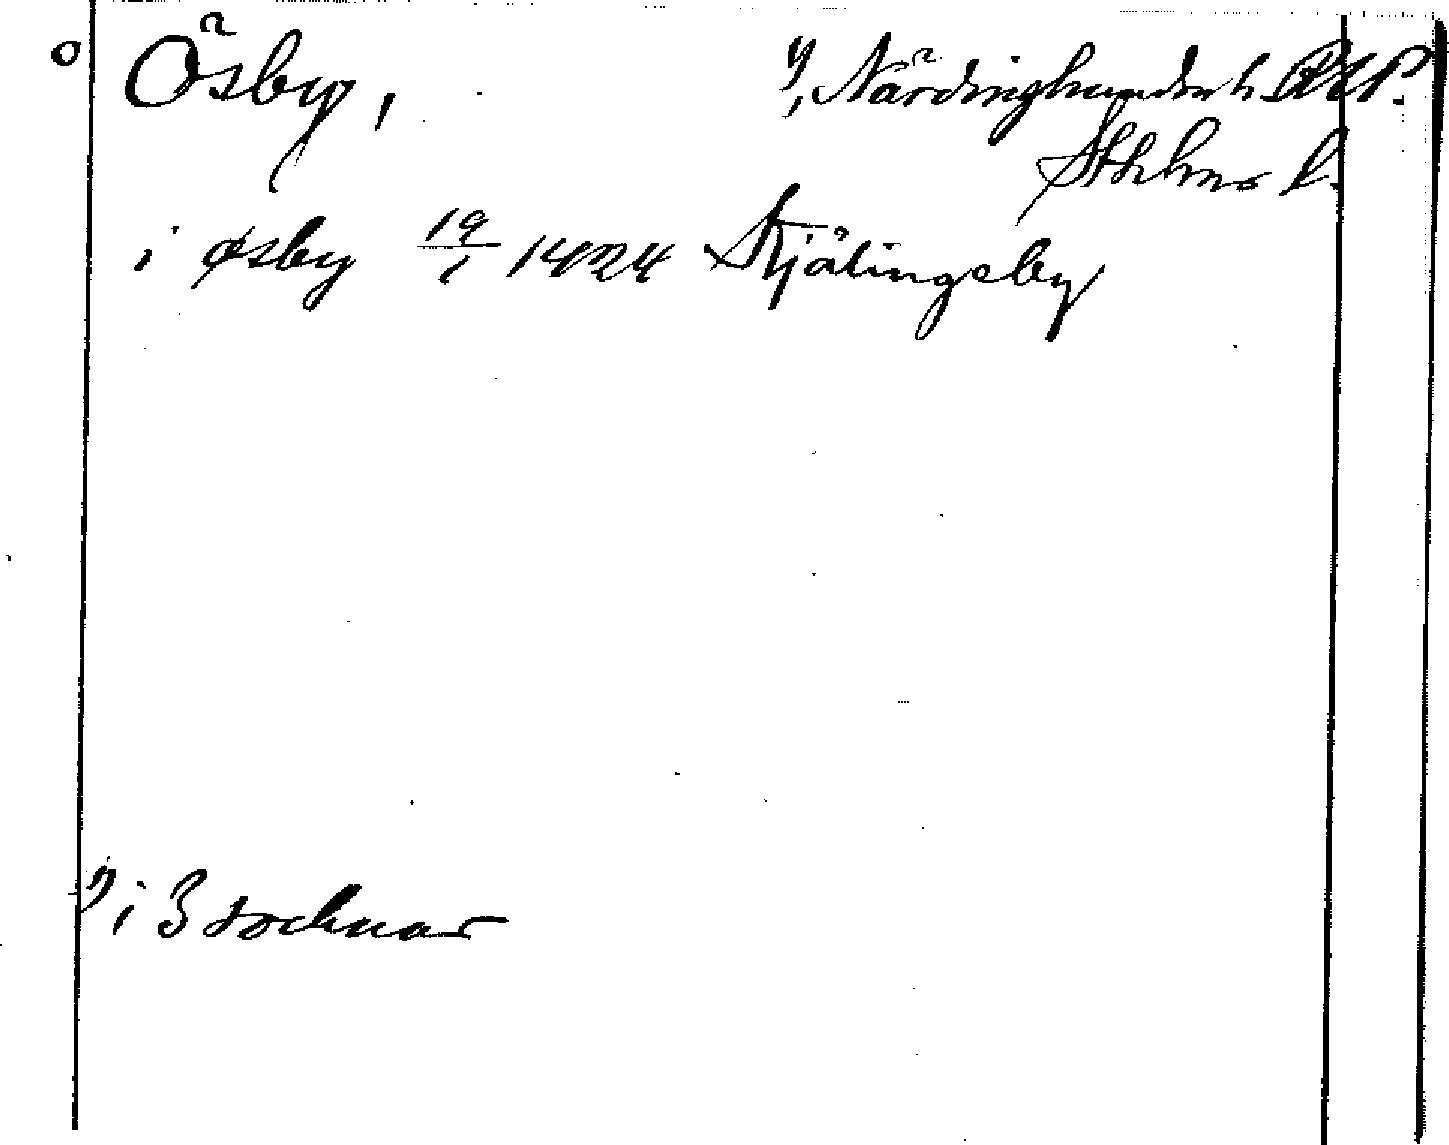 o Ösby, ?, Närdinghundra h. AUP.
Sthlms l.
i øsby 19/1 1424 Kjälingsby
?) i 3 socknar